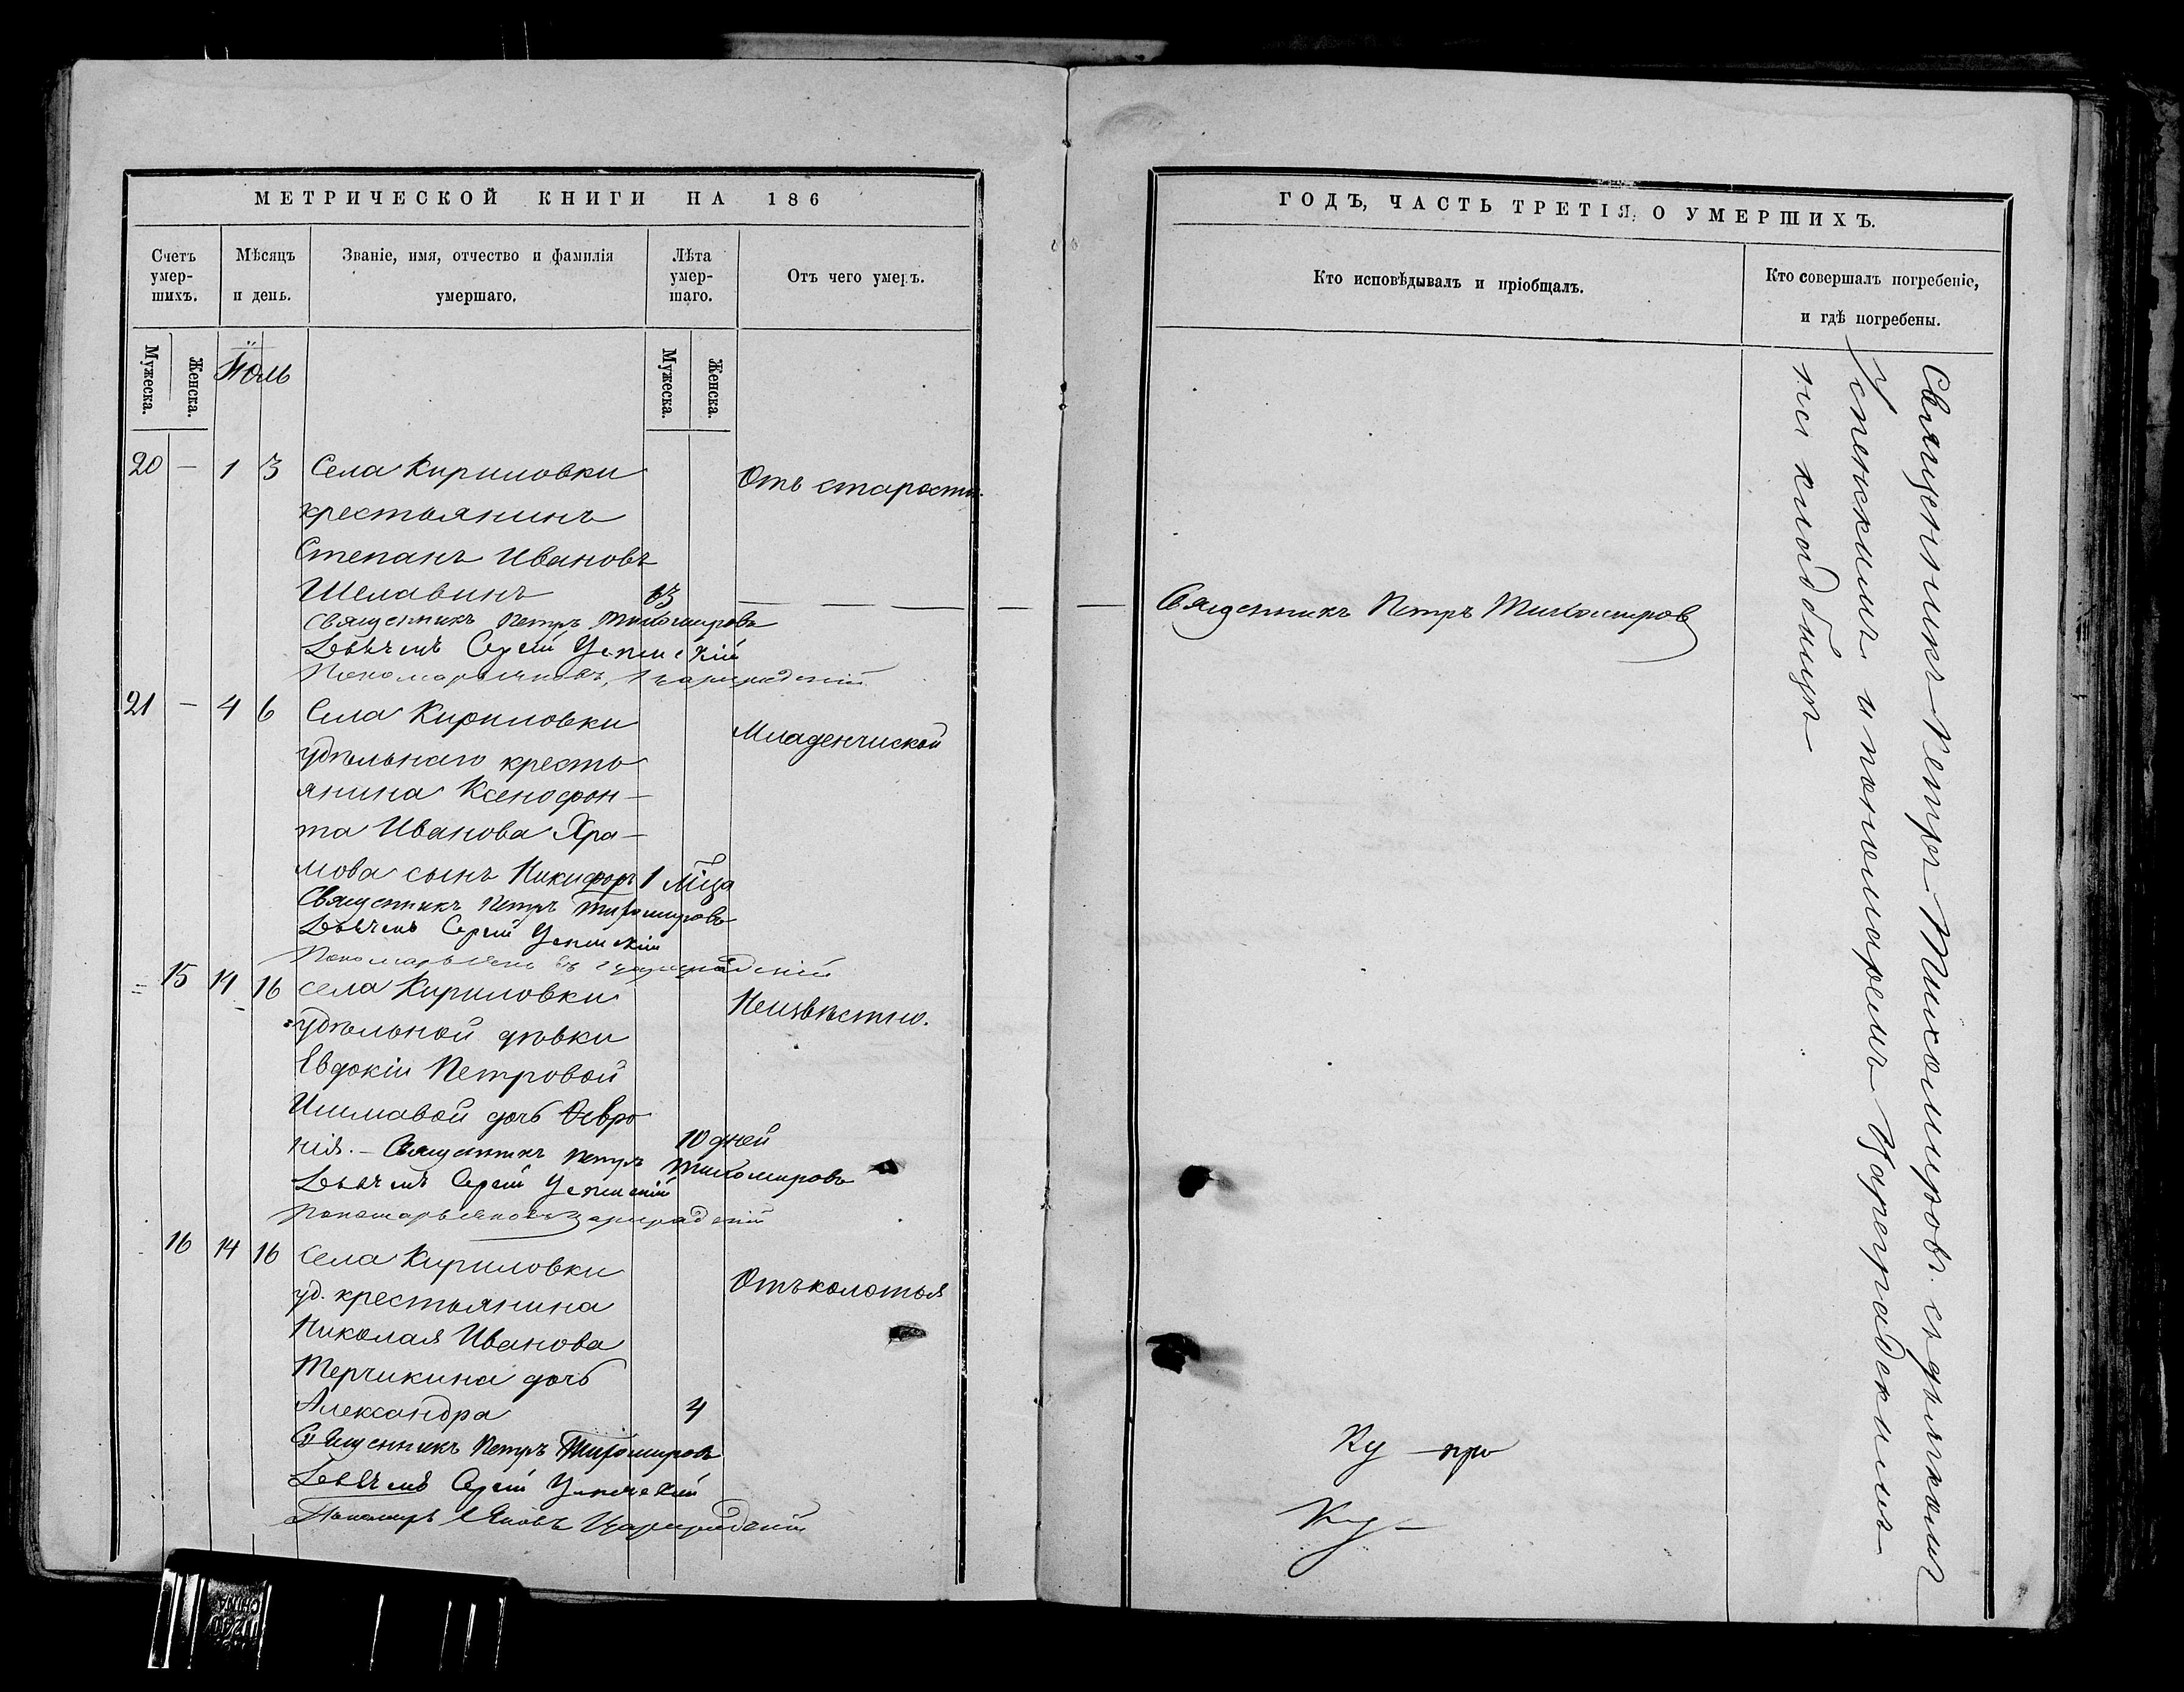 МЕТРИЧЕСКОЙ КНИГИ НА 186
Счетъ умер-шихъ.
Мѣсяцъ и день.
Званіе, имя, отчество и фамилія умершаго.
Лѣта умер-шаго.
Отъ чего умеръ.
Мужеска.
Женска.
Іюль
Мужеска.
Женска.
20 — 1 3 Села Кириловки
Отъ старости.
крестьянинъ
Степанъ Ивановъ
Шелавинъ 63
Священникъ Петръ Тихомировъ
Дьячекъ Сергій Успенскій
Пономарь Яковъ Цареградскій
21 — 4 6 Села Кириловки
Младенческой
удѣльнаго кресть
янина Ксенофон-
та Иванова Хра-
мова сынъ Никифоръ 1 мѣца
Священникъ Петръ Тихомировъ
Дьячекъ Сергій Успенскій
Пономарь Яковъ Цареградскій
15 14 16 Села Кириловки
Неизвѣстно.
удѣльной дѣвки
Евдокіи Петровой
дочь Февро
нія. — Священникъ Петръ Тихомировъ
10 дней
Дьячекъ Сергій Успенскій
Пономарь Яковъ Цареградскій
16 14 16 Села Кириловки
Отъ колотья
уд. крестьянина
Николая Иванова
Терчикина дочь
Александра 4
Священникъ Петръ Тихомировъ
Дьячекъ Сергій Успенскій
Пономарь Яковъ Цареградскій
ГОДЪ, ЧАСТЬ ТРЕТІЯ, О УМЕРШИХЪ.
Кто исповѣдывалъ и пріобщалъ.
Кто совершалъ погребеніе, и гдѣ погребены.
Священникъ Петръ Тихомиров
Священникъ Петръ Тихомировъ съ дьячкомъ
Успенскимъ и пономаремъ Цареградскимъ
на кладбищѣ
Ку — про
Ку —